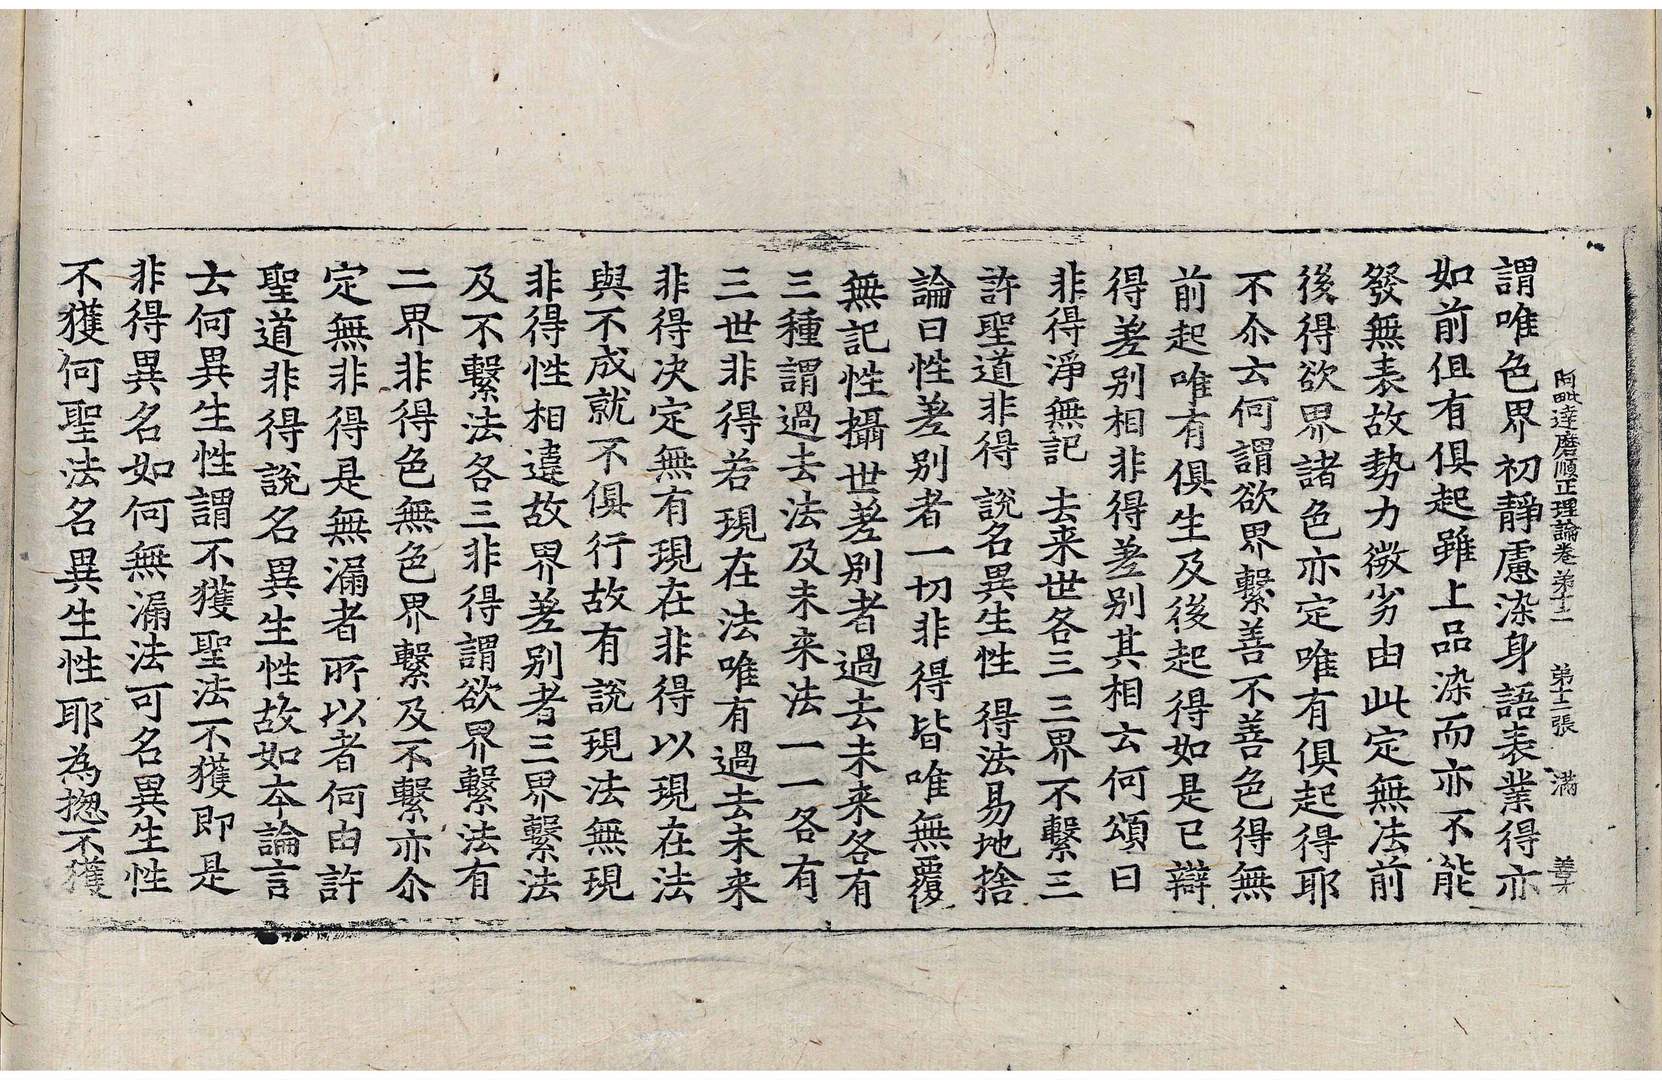 阿毗達磨順正理論卷第十二 第十二張 滿 善才
謂唯色界初靜慮染身語表業得亦
如前但有俱起雖上品染而亦不能
發無表故勢力微劣由此定無法前
後得欲界諸色亦定唯有俱起得耶
不尒云何謂欲界繫善不善色得無
前起唯有俱生及後起得如是已辯
得差別相非得差別其相云何頌曰
非得淨無記 去来世各三 三界不繫三
許聖道非得 說名異生性 得法易地捨
論曰性差別者一切非得皆唯無覆
無記性攝世差別者過去未来各有
三種謂過去法及未来法一一各有
三世非得若現在法唯有過去未来
非得决定無有現在非得以現在法
與不成就不俱行故有說現法無現
非得性相違故界差別者三界繫法
及不繫法各三非得謂欲界繫法有
二界非得色無色界繫及不繫亦尒
定無非得是無漏者所以者何由許
聖道非得說名異生性故如夲論言
云何異生性謂不獲聖法不獲即是
非得異名如何無漏法可名異生性
不獲何聖法名異生性耶為揔不獲